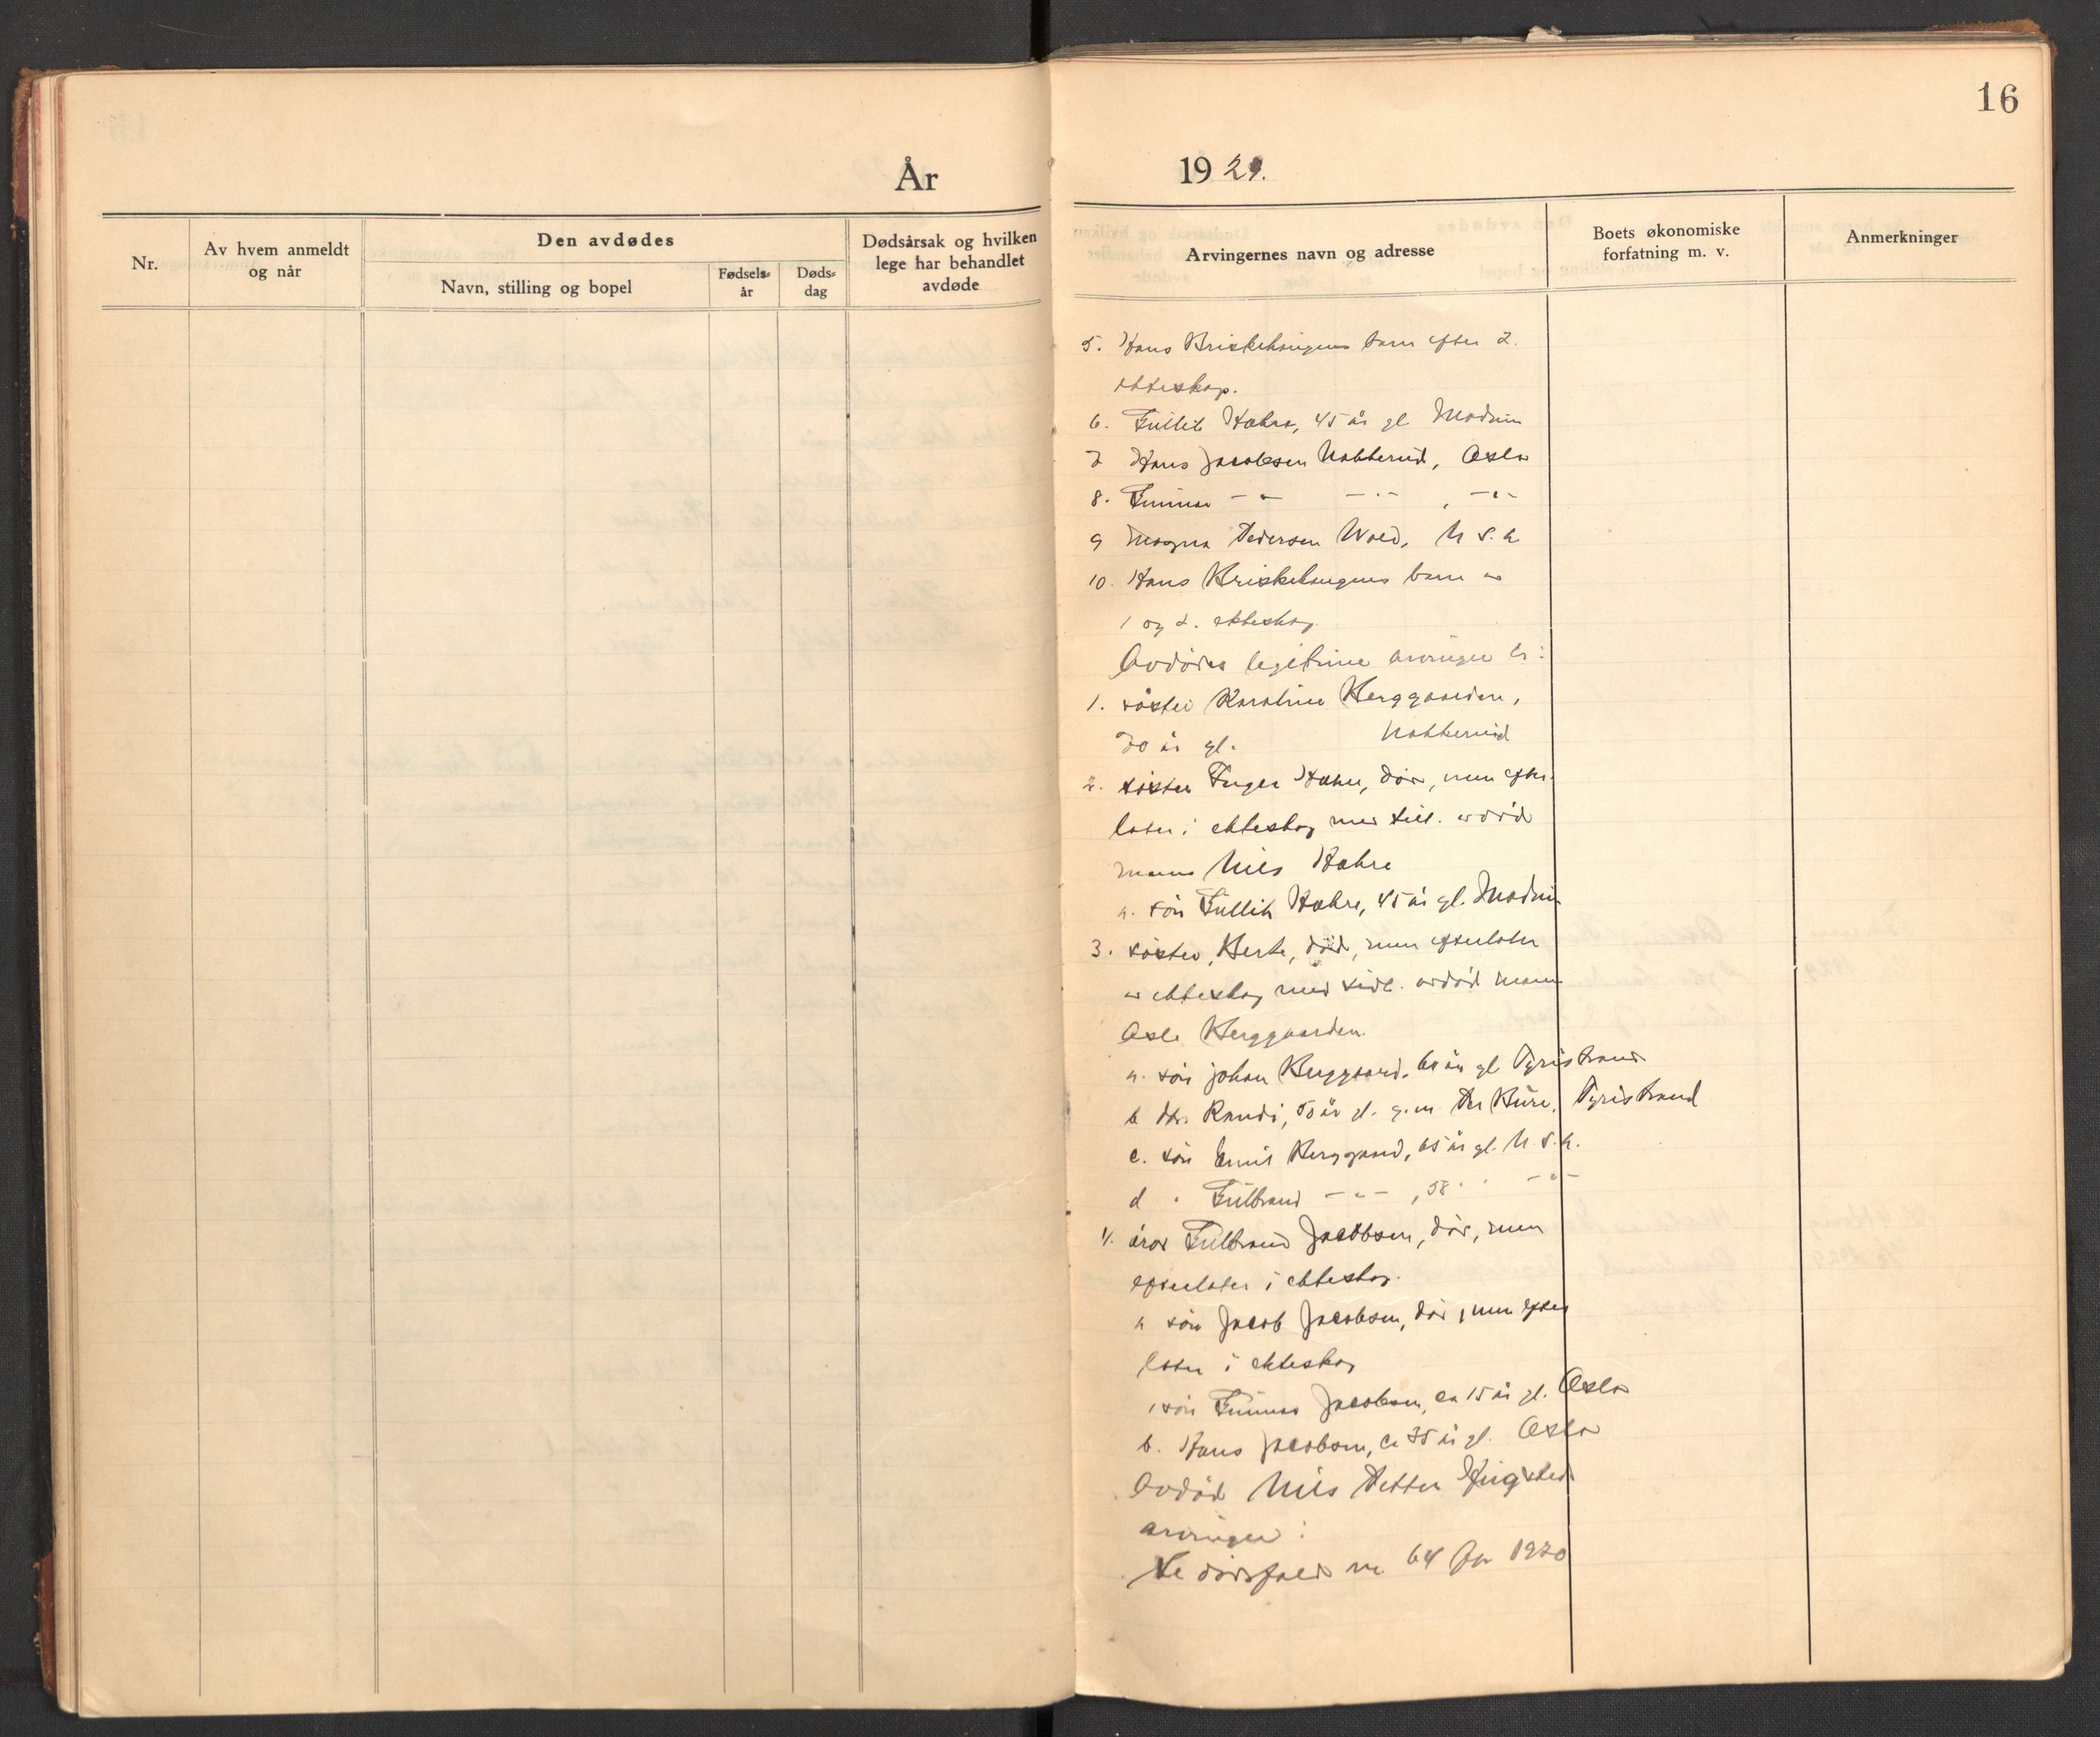 16
År 1929.
Nr.
Av hvem anmeldt
og når
Den avdødes
Navn, stilling og bopel
Fødsels-
år
Døds-
dag
Dødsårsak og hvilken
lege har behandlet
avdøde
Arvingernes navn og adresse
Boets økonomiske
forfatning m. v.
Anmerkninger
5. Hans barn efter 2.
ekteskap.
6. Gullik Hæhre, 45 år gl. Modum
7 Hans Jacobsen Nakkerud, Oslo
8. Gunnar -"- -"- , -"-
9 Magna Pedersen Wold, U S. A
10. Hans barn av
1 og 2. ekteskap.
Avdødes legitime arvinger er:
1. søster Karoline Berggaarden,
70 år gl. Nakkerud
2. søster Inger Hæhre, død, men efter-
later i ekteskap med tidl. avdød
mann Nils Hæhre
a. søn Gullik Hæhre, 45 år gl. Modum
3. søster, Berte, død, men efterlater
av ekteskap med tidl. avdød mann
Axel Berggaarden
a. søn Johan Berggaard, år gl Tyristrand
b dtr. Randi, 50 år gl. g.m. Per Bure, Tyristrand
c. søn Emil Berggaard, 65 år gl. U. S. A.
d " Gulbrand -"- , 58 " " -"-
4. bror Gulbrand Jacobsen, død, men
efterlater i ekteskap.
a søn Jacob Jacobsen, død, men efter
later i ekteskap
1 søn Gunnar Jacobsen, ca 15 år gl. Oslo
b. Hans Jacobsen, ca 35 år gl. Oslo
Avdød Nils Petter
arvinger:
Se dødsfald nr 64 for 1920